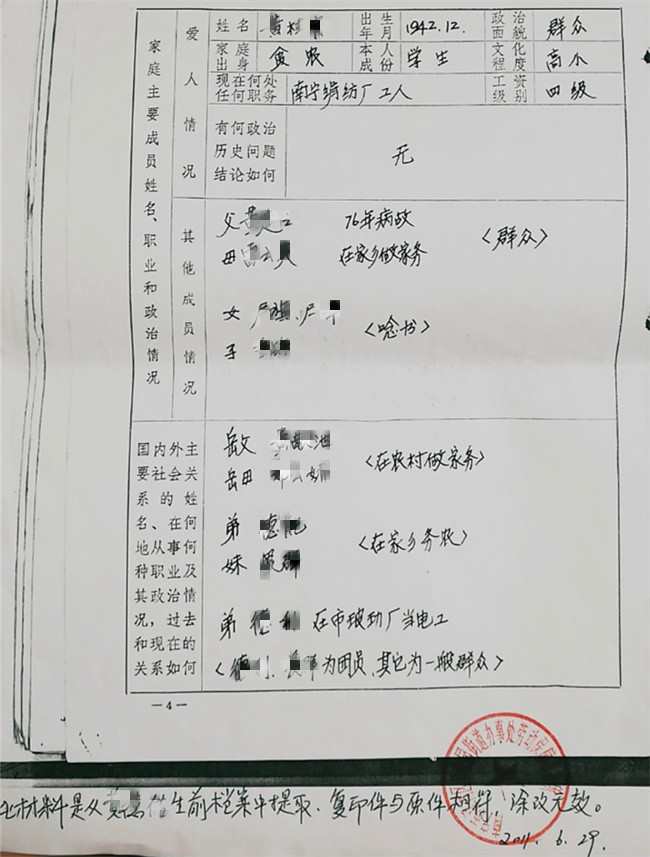 家庭主要成员姓名、职业和政治情况
爱人情况
姓名 出生年月 1942.12. 政治面貌 群众
家庭出身 贫农 本人成份 学生 文化程度 高小
现在何处任何职务 南宁绢纺厂工人 工资级别 四级
有何政治
历史问题 无
结论如何
其他成员情况
父 76年病故
〈群众〉
母 在家乡做家务
女
〈唸书〉
子
国内外主
要社会关
系的姓
名、在何
地从事何
种职业及
其政治情
况,过去
和现在的
关系如何
岳父
〈在农村做家务〉
岳母
弟 德
〈在家乡务农〉
妹 群
弟 德 在市玻功厂当电工
〈德 为团员,其它为一般群众〉
—4—
街道办事处劳动
此材料是从 生前档案中提取、复印件与原件相符,涂改无效。
2011. 6. 29.